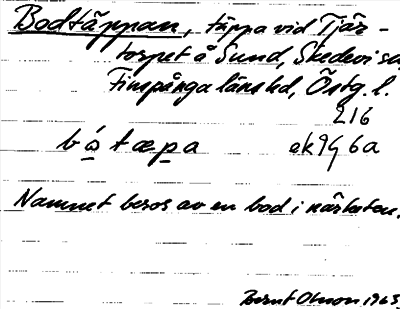 Bodtäppan, täppa vid Tjär-
torpet å Sund, Skedevi sn
Finspånga länshd, Östg. l.
216
bótæpa ek 9g 6a
Namnet beros av en bod i närheten.
Bernt Olsson 1963